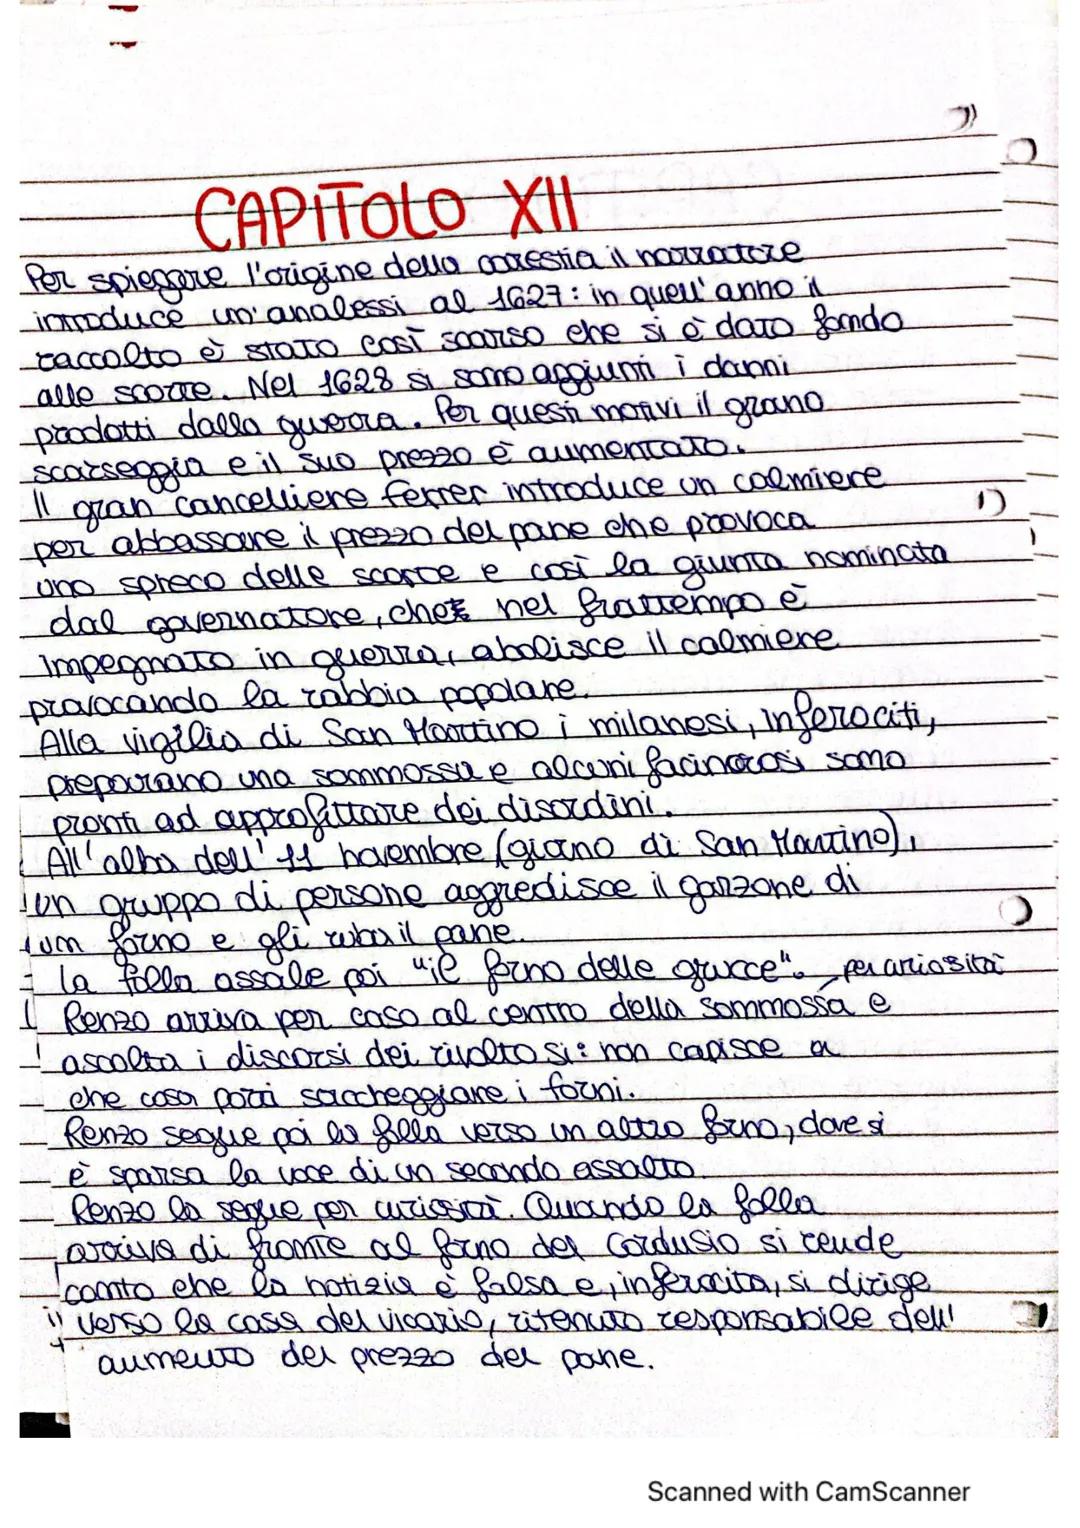 CAPITOLO XII
Per spiegare l'origine della carestia il narratore
introduce un'analessi al 1627: in quell'anno il
raccolto è stato così scarso che si è dato fondo
alle scorte. Nel 1628 si sono aggiunti i danni
prodotti dalla guerra. Per questi motivi il grano
scarseggia e il suo prezzo è aumentato.
Il gran cancelliere Ferrer introduce un calmiere
per abbassare il prezzo del pane che provoca
uno spreco delle scorte e così la giunta nominata
dal governatore, che nel frattempo è
impegnato in guerra, abolisce il calmiere
provocando la rabbia popolare.
Alla vigilia di San Martino i milanesi, inferociti,
preparano una sommossa e alcuni facinorosi sono
pronti ad approfittare dei disordini.
All'alba dell'11 novembre (giorno di San Martino),
un gruppo di persone aggredisce il garzone di
un forno e gli ruba il pane.
La folla assale poi "il forno delle grucce". per curiosità
Renzo arriva per caso al centro della sommossa e
ascolta i discorsi dei rivoltosi: non capisce a
che cosa porti saccheggiare i forni.
Renzo segue poi la folla verso un altro forno, dove si
è sparsa la voce di un secondo assalto.
Renzo la segue per curiosità. Quando la folla
arriva di fronte al forno del Cordusio si rende
conto che la notizia è falsa e, inferocita, si dirige
verso la casa del vicario, ritenuto responsabile dell'
aumento del prezzo del pane.
Scanned with CamScanner